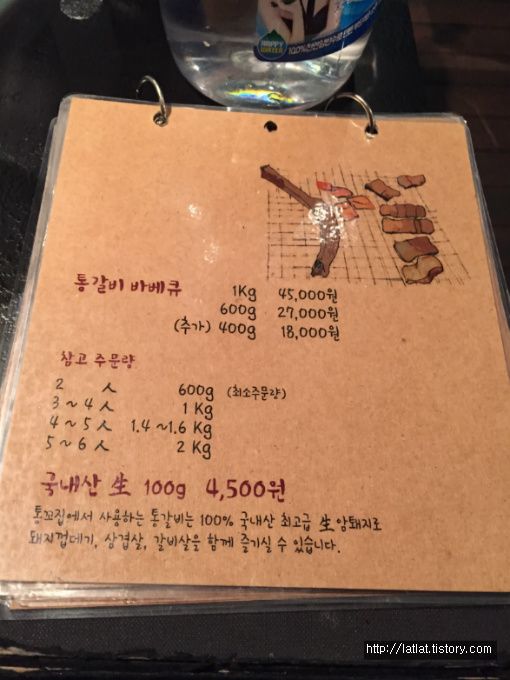 HAPPY
WATER
통갈비 바베큐 1Kg 45,000원
600g 27,000원
(추가) 400g 18,000원
참고 주문량
2 人 600g (최소주문량)
3 ~ 4 人 1 Kg
4 ~ 5 人 1.4 ~1.6 Kg
5 ~ 6 人 2 Kg
국내산 生 100g 4,500원
통꼬집에서 사용하는 통갈비는 100% 국내산 최고급 生 암퇘지로
돼지껍데기, 삼겹살, 갈비살을 함께 즐기실 수 있습니다.
http://latlat.tistory.com